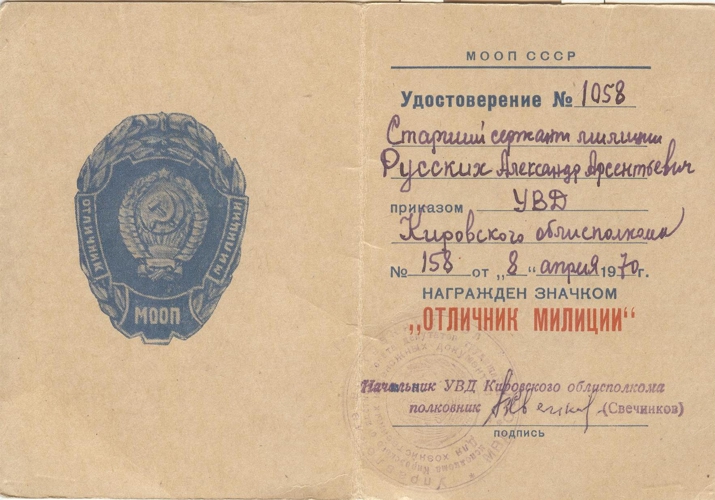 ОТЛИЧНИК
МИЛИЦИИ
МООП
МООП СССР
Удостоверение № 1058
Старший сержант милиции
Русских Александр Арсентьевич
приказом УВД
Кировского облисполкома
№ 158 от „8“ апреля 1970г.
НАГРАЖДЕН ЗНАЧКОМ
„ОТЛИЧНИК МИЛИЦИИ“
Начальник УВД Кировского облисполкома
полковник (Свечников)
подпись